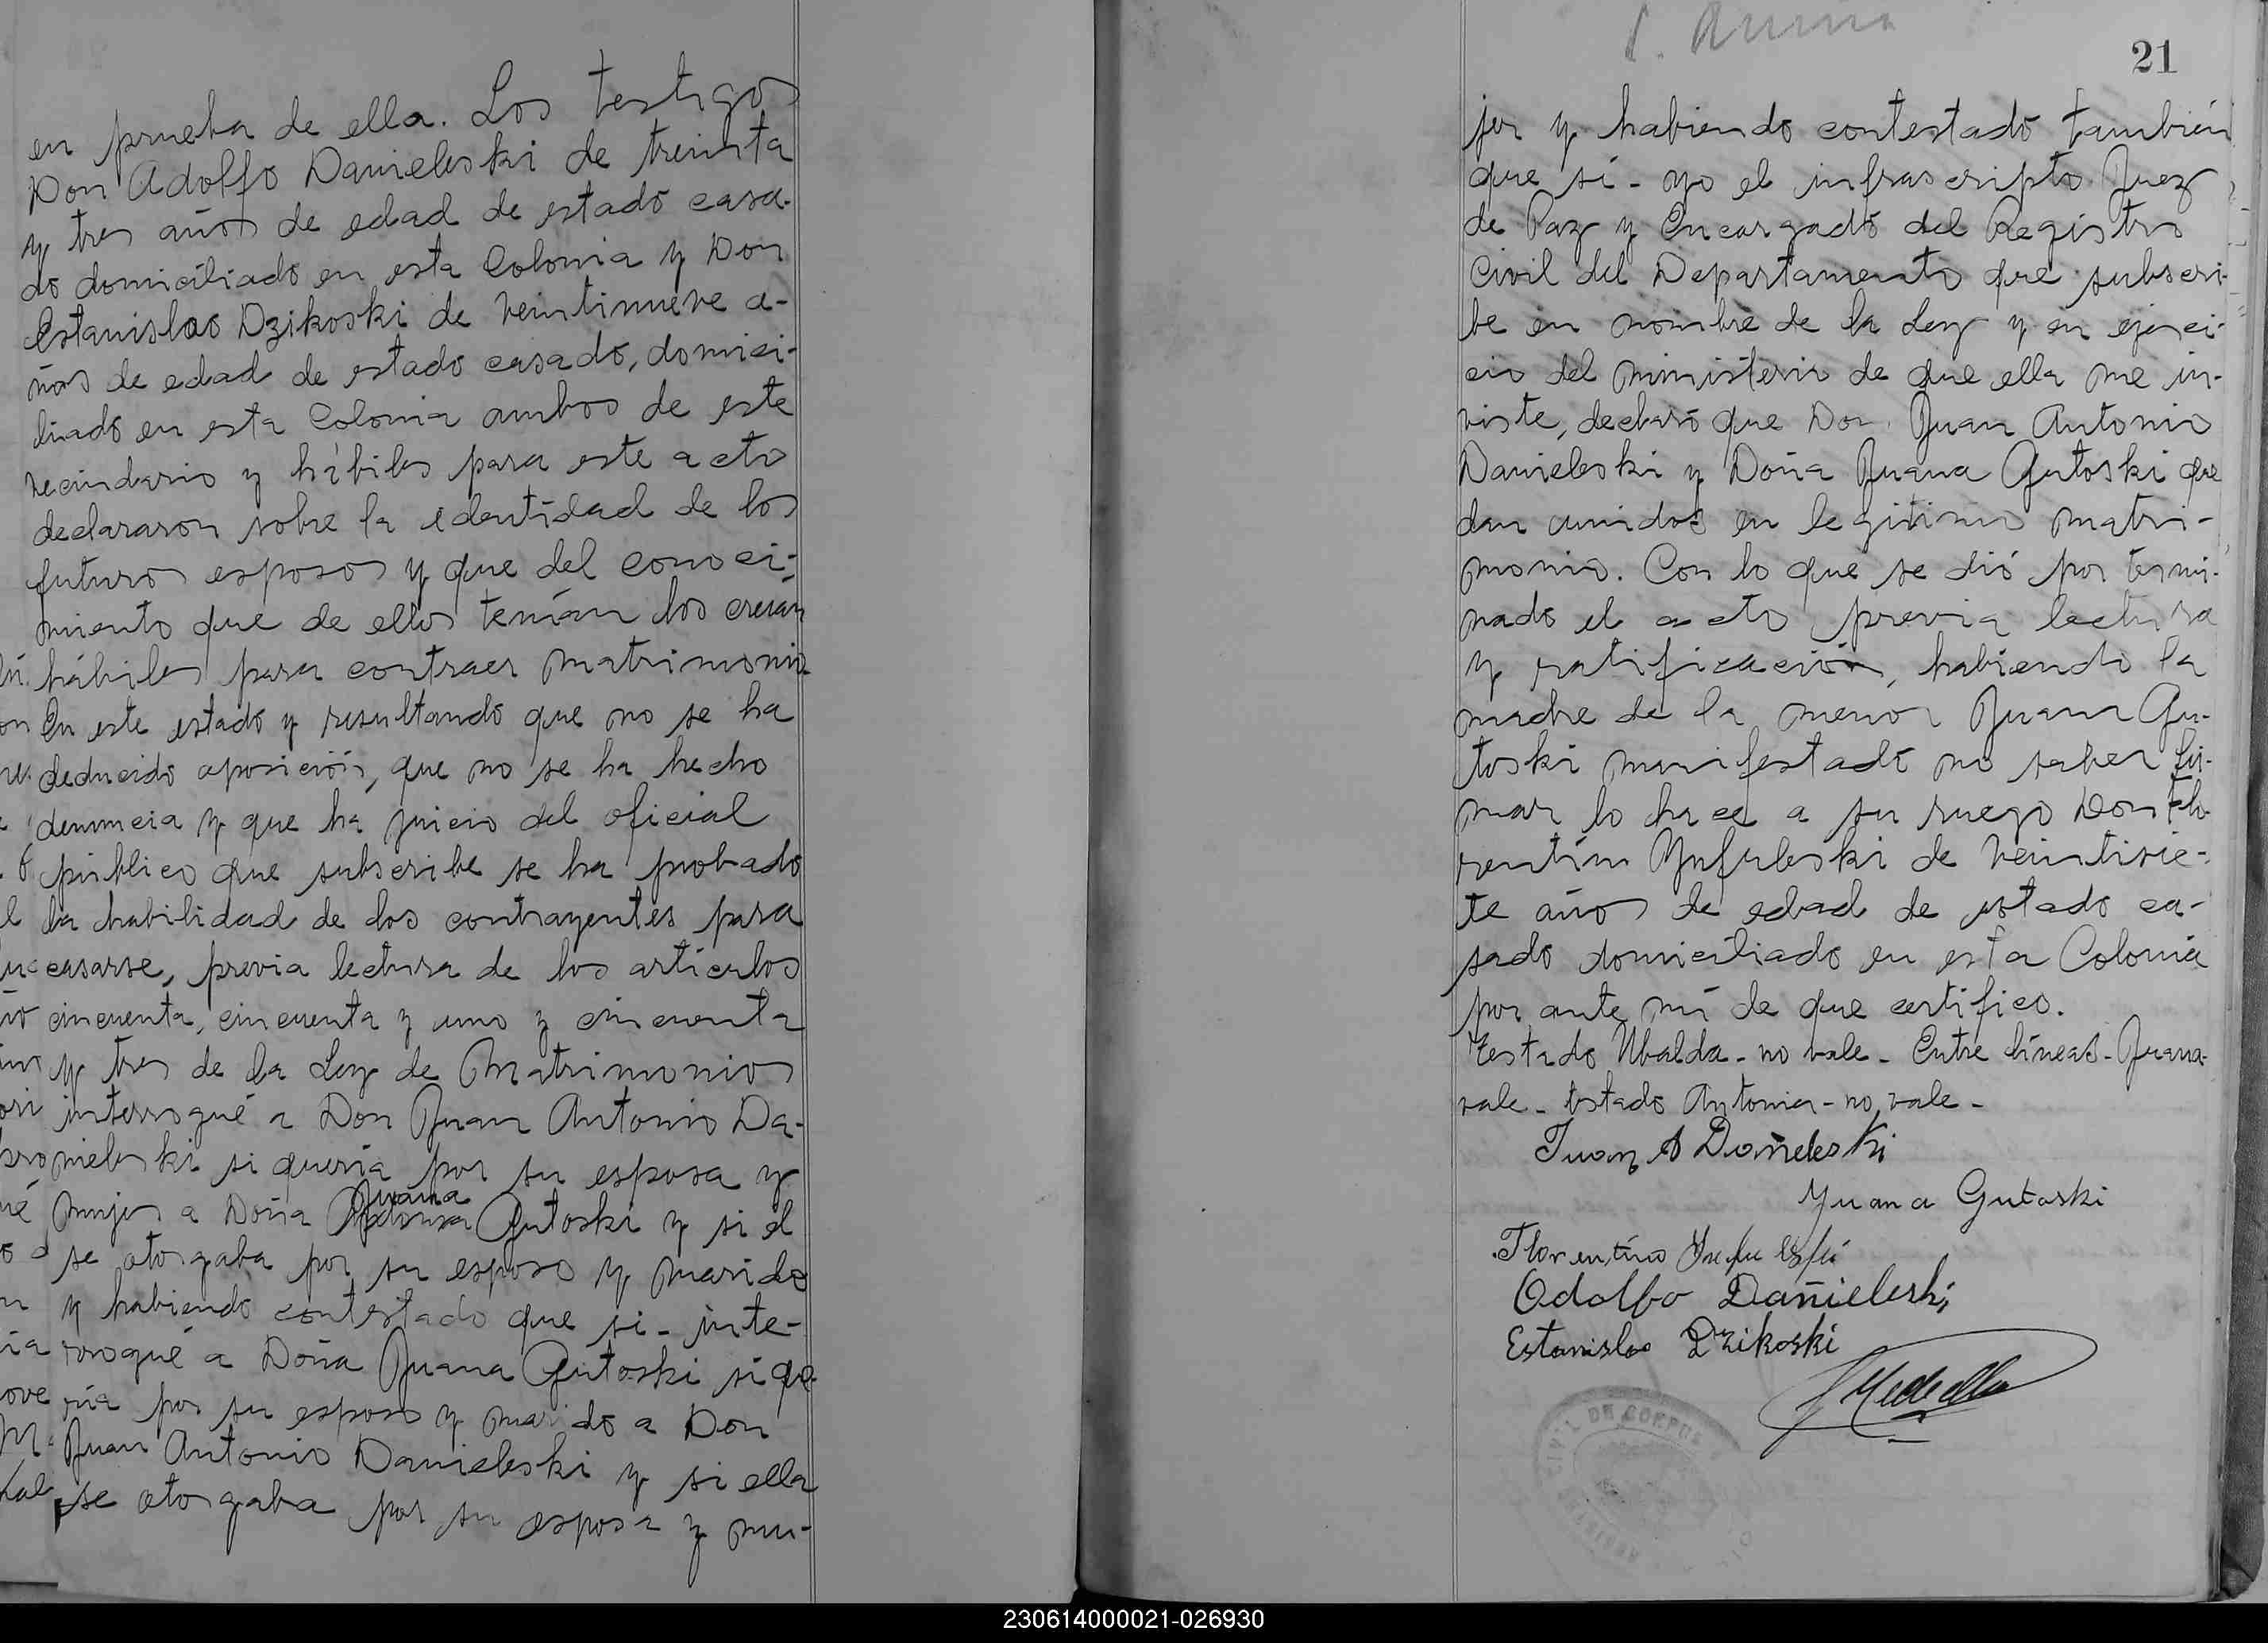 en prueba de ella. Los testigos
Don Adolfo Danieleski de treinta
y tres años de edad de estado casa-
do domiciliado en esta Colonia y Don
Estanislao Dzikoski de veintinueve a-
ños de edad de estado casado, domici-
liado en esta Colonia ambos de este
vecindario y hábiles para este acto
declararon sobre la identidad de los
futuros esposos y que del conoci-
miento que de ellos tenían los creían
hábiles para contraer matrimonio
En este estado y resultando que no se ha
deducido oposición, que no se ha hecho
denuncia y que ha juicio del oficial
público que subscribe se ha probado
la habilidad de los contrayentes para
casarse, previa lectura de los artículos
cincuenta, cincuenta y uno y cincuenta
y tres de la Ley de Matrimonios
interrogué a Don Juan Antonio Da-
nieleski si quería por su esposa y
Juana
mujer a Doña Antonia Gutoski y si el
se otorgaba por su esposo y marido
y habiendo contestado que si - inte-
rrogué a Doña Juana Gutoski si que-
ría por su esposo y marido a Don
Juan Antonio Danieleski y si ella
se otorgaba por su esposa y mu-
21
jer y habiendo contestado también
que sí - yo el infrascripto Juez
de Paz y Encargado del Registro
Civil del Departamento que subscri-
be en nombre de la Ley y en ejerci-
cio del ministerio de que ella me in-
viste, declaró que Don Juan Antonio
Danieleski y Doña Juana Gutoski que
dan unidos en legitimo matri-
monio. Con lo que se dió por termi-
nado el acto previa lectura
y ratificación, habiendo la
madre de la menor Juana Gu-
toski manifestado no saber fir-
mar lo hace a su ruego Don Flo-
rentín de veintisie-
te años de edad de estado ca-
sado domiciliado en esta Colonia
por ante mí de que certifico.
Testado Ubalda - no vale - Entre líneas - Juana-
vale - testado Antonia - no vale -
Juan A Dañeleski
Juana Gutoski
Florentino
Adolfo Dañieleski
Estanislao Dzikoski
CIVIL DE CORPUS
230614000021-026930